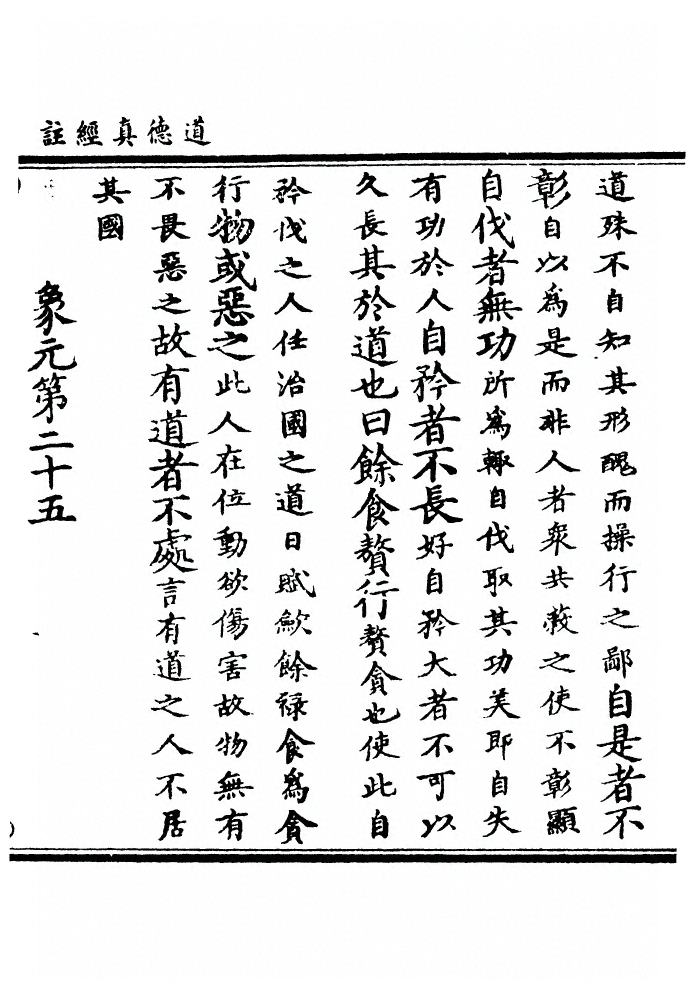 道德真經註
道殊不自知其形醜而操行之鄙自是者不
彰自以為是而非人者衆共蔽之使不彰顯
自伐者無功所為輒自伐取其功美即自失
有功於人自矜者不長好自矜大者不可以
久長其於道也曰餘食贅行贅貪也使此自
矜伐之人任治國之道日賦歛餘祿食為貪
行物或惡之此人在位動欲傷害故物無有
不畏惡之故有道者不處言有道之人不居
其國
象元第二十五